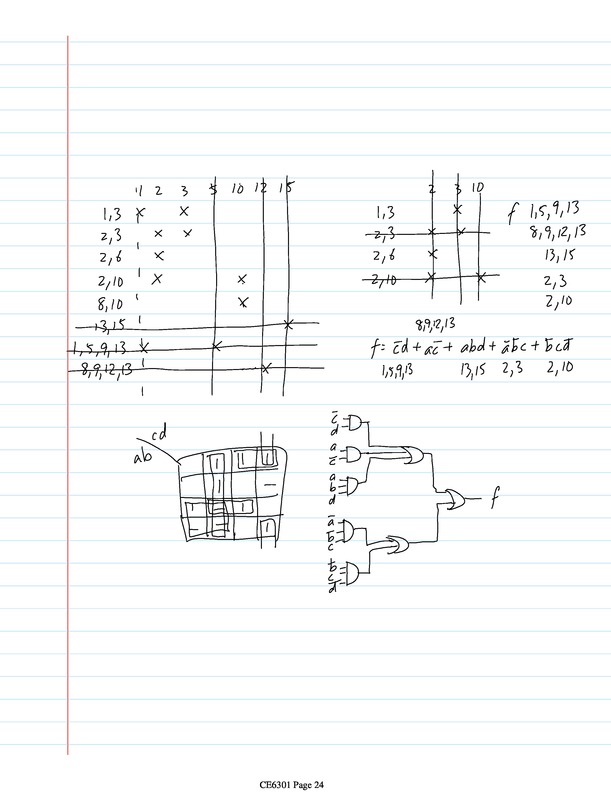 1 2 3 5 10 12 15
1,3 x x
2,3 x x
2,6 x
2,10 x x
8,10 x
13,15 x
1,5,9,13 x x
8,9,12,13 x
2 3 10
1,3 x
2,3 x x
2,6 x
2,10 x x
f 1,5,9,13
8,9,12,13
13,15
2,3
2,10
8,9,12,13
f = c̅d + ac̅ + abd + a̅b̅c + b̅cd̅
1,5,9,13 13,15 2,3 2,10
cd
ab
c̅
d
a
c̅
a
b
d
a̅
b̅
c
b̅
c
d̅
f
CE6301 Page 24